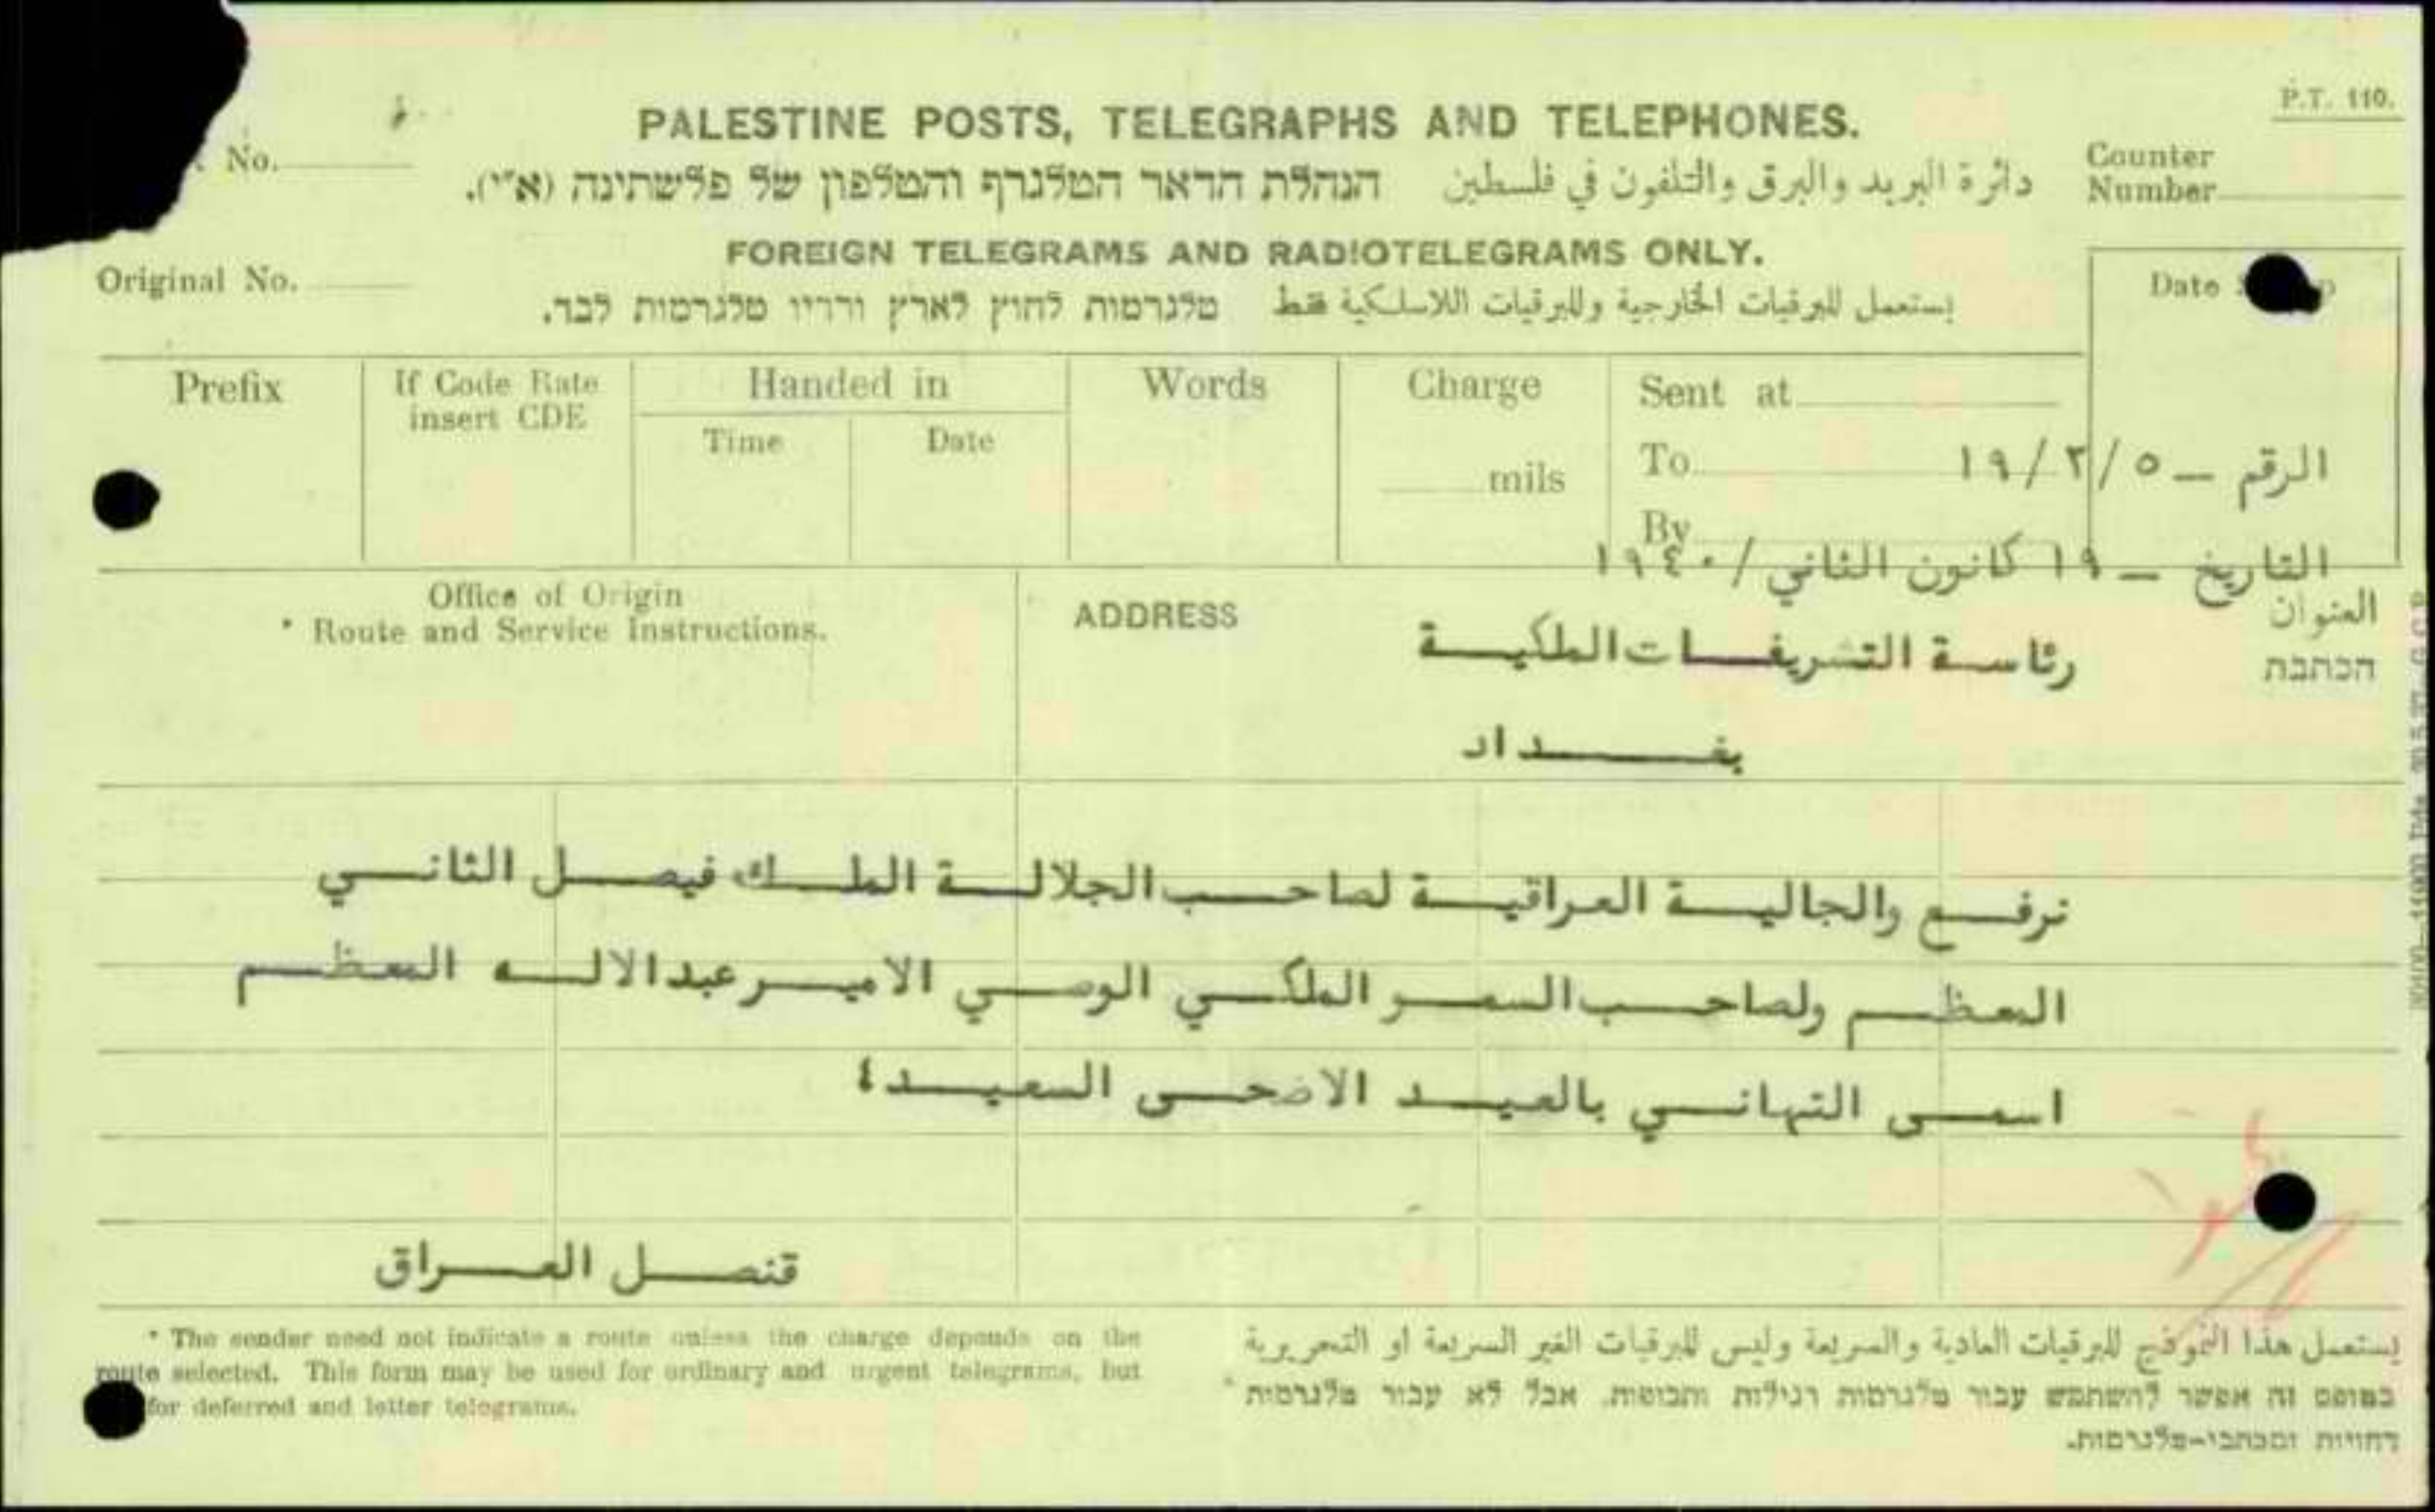 P.T. 110.
PALESTINE POSTS, TELEGRAPHS AND TELEPHONES.
No.
Counter
Number
דائرة البريد والبرق والتلفون في فلسطين הנהלת הדאר הטלגרף והטלפון של פלשתינה (א"י).
FOREIGN TELEGRAMS AND RADIOTELEGRAMS ONLY.
Original No.
Date
يستعمل للبرقيات الخارجية وللبرقيات اللاسلكية فقط טלגרמות לחוץ לארץ ורדיו טלגרמות לבד.
Prefix
If Code Rate
insert CDE
Handed in
Time
Date
Words
Charge
mils
Sent at
To
By
الرقم - ١٩/٢/٥
التاريخ - ١٩ كانون الثاني / ١٩٤٠
Office of Origin
* Route and Service Instructions.
ADDRESS
العنوان
הכתבת
رئاسة التشريفات الملكية
بغداد
نرفع والجالية العراقية لصاحب الجلالة الملك فيصل الثاني
المعظم ولصاحب السمو الملكي الوصي الامير عبدالاله المعظم
اسمى التهاني بالعيد الاضحى السعيد؛
قنصل العراق
* The sender need not indicate a route unless the charge depends on the
route selected. This form may be used for ordinary and urgent telegrams, but
for deferred and letter telegrams.
يستعمل هذا النموذج للبرقيات العادية والسريعة وليس للبرقيات الغير السريعة أو التحريرية
בטופס זה אפשר להשתמש עבור טלגרמות רגילות ותכופות. אבל לא עבור טלגרמות
דחויות ומכתבי-טלגרמות.